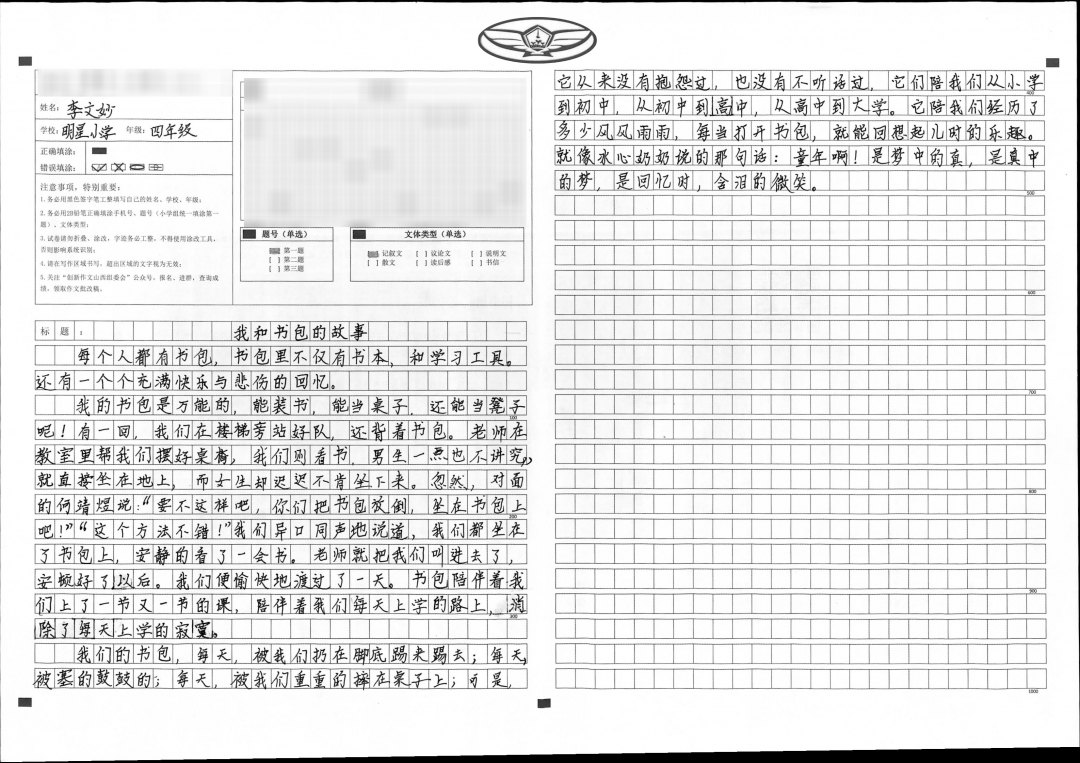 姓名：李文妙
学校：明星小学 年级：四年级
正确填涂：
错误填涂：
注意事项，特别重要：
1.务必用黑色签字笔工整填写自己的姓名、学校、年级；
2.务必用2B铅笔正确填涂手机号、题号（小学组统一填涂第一
题）、文体类型；
3.试卷请勿折叠、涂改，字迹务必工整，不得使用涂改工具，
否则影响系统识别；
4.请在写作区域书写，超出区域的文字视为无效；
5.关注“创新作文山西组委会”公众号，报名、进群，查询成
绩，领取作文批改稿。
题号（单选）
第一题
[ ] 第二题
[ ] 第三题
文体类型（单选）
记叙文 [ ] 议论文 [ ] 说明文
[ ] 散文 [ ] 读后感 [ ] 书信
标题：我和书包的故事
每个人都有书包，书包里不仅有书本，和学习工具。
还有一个个充满快乐与悲伤的回忆。
我的书包是万能的，能装书，能当桌子，还能当凳子
100
呢！有一回，我们在楼梯旁站好队，还背着书包。老师在
教室里帮我们摆好桌椅，我们则看书，男生一点也不讲究，
就直接坐在地上，而女生却迟迟不肯坐下来。忽然，对面
的何靖煜说：“要不这样吧，你们把书包放倒，坐在书包上
200
吧！”“这个方法不错！”我们异口同声地说道，我们都坐在
了书包上，安静的看了一会书。老师就把我们叫进去了，
安顿好了以后。我们便愉快地渡过了一天。书包陪伴着我
们上了一节又一节的课，陪伴着我们每天上学的路上，消
300
除了每天上学的寂寞。
我们的书包，每天，被我们扔在脚底踢来踢去；每天，
被塞的鼓鼓的；每天，被我们重重的摔在桌子上；可是，
它从来没有抱怨过，也没有不听话过，它们陪我们从小学
400
到初中，从初中到高中，从高中到大学。它陪我们经历了
多少风风雨雨，每当打开书包，就能回想起儿时的乐趣。
就像冰心奶奶说的那句话：童年啊！是梦中的真，是真中
的梦，是回忆时，含泪的微笑。
500
600
700
800
900
1000